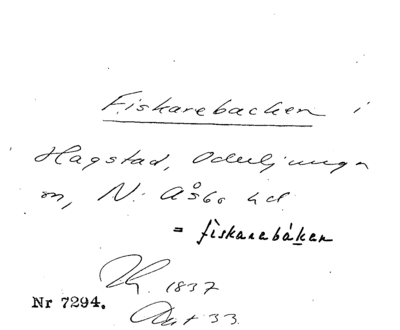 Fiskarebacken i
Hagstad, Oderljunga
sn, N. Åsbo hd.
= fìskarebáken
1837
Nr 7294.
33